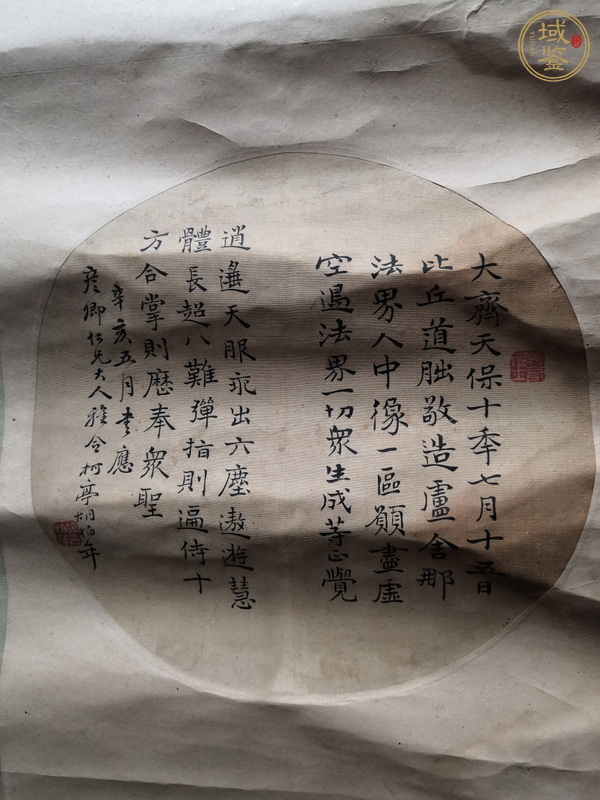 大齊天保十年七月十五日
比丘道朏敬造盧舍那
法界人中像一區願盡虛
空遍法界一切眾生成等正覺
逍遙天服永出六塵遨遊慧
體長超八難彈指則遍侍十
方合掌則歷奉眾聖
辛亥五月書應
彥卿仁兄大人雅令柯亭胡伯年
域鑒